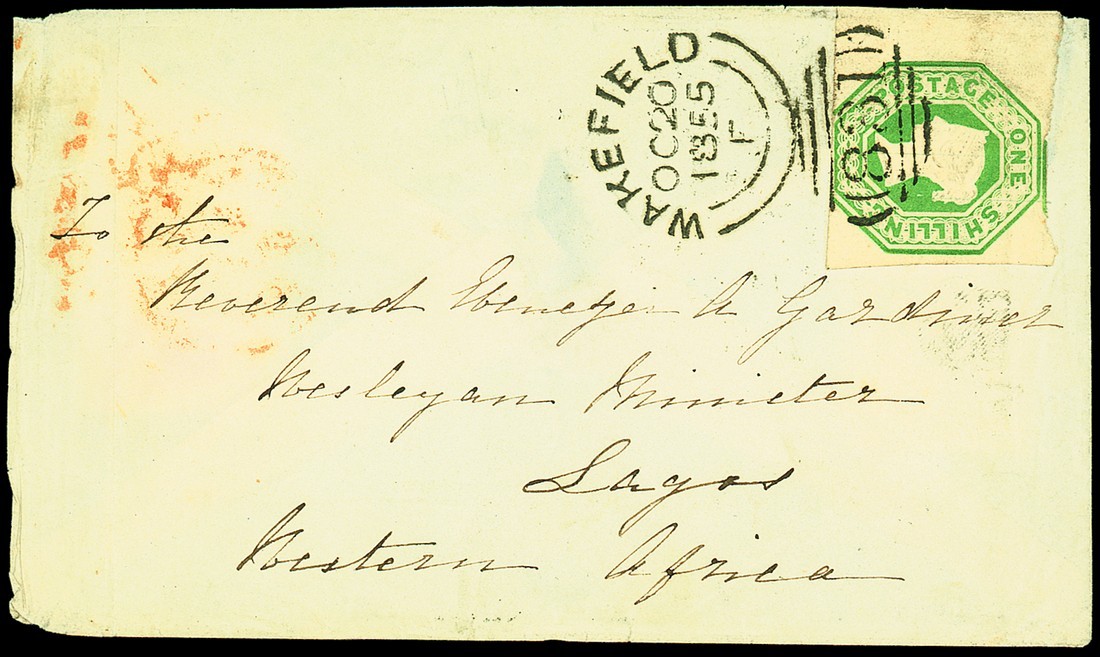 WAKEFIELD
OC 20
1855
F
831
POSTAGE ONE SHILLIN
To the
Reverend Ebenezer A Gardiner
Wesleyan Minister
Lagos
Western Africa